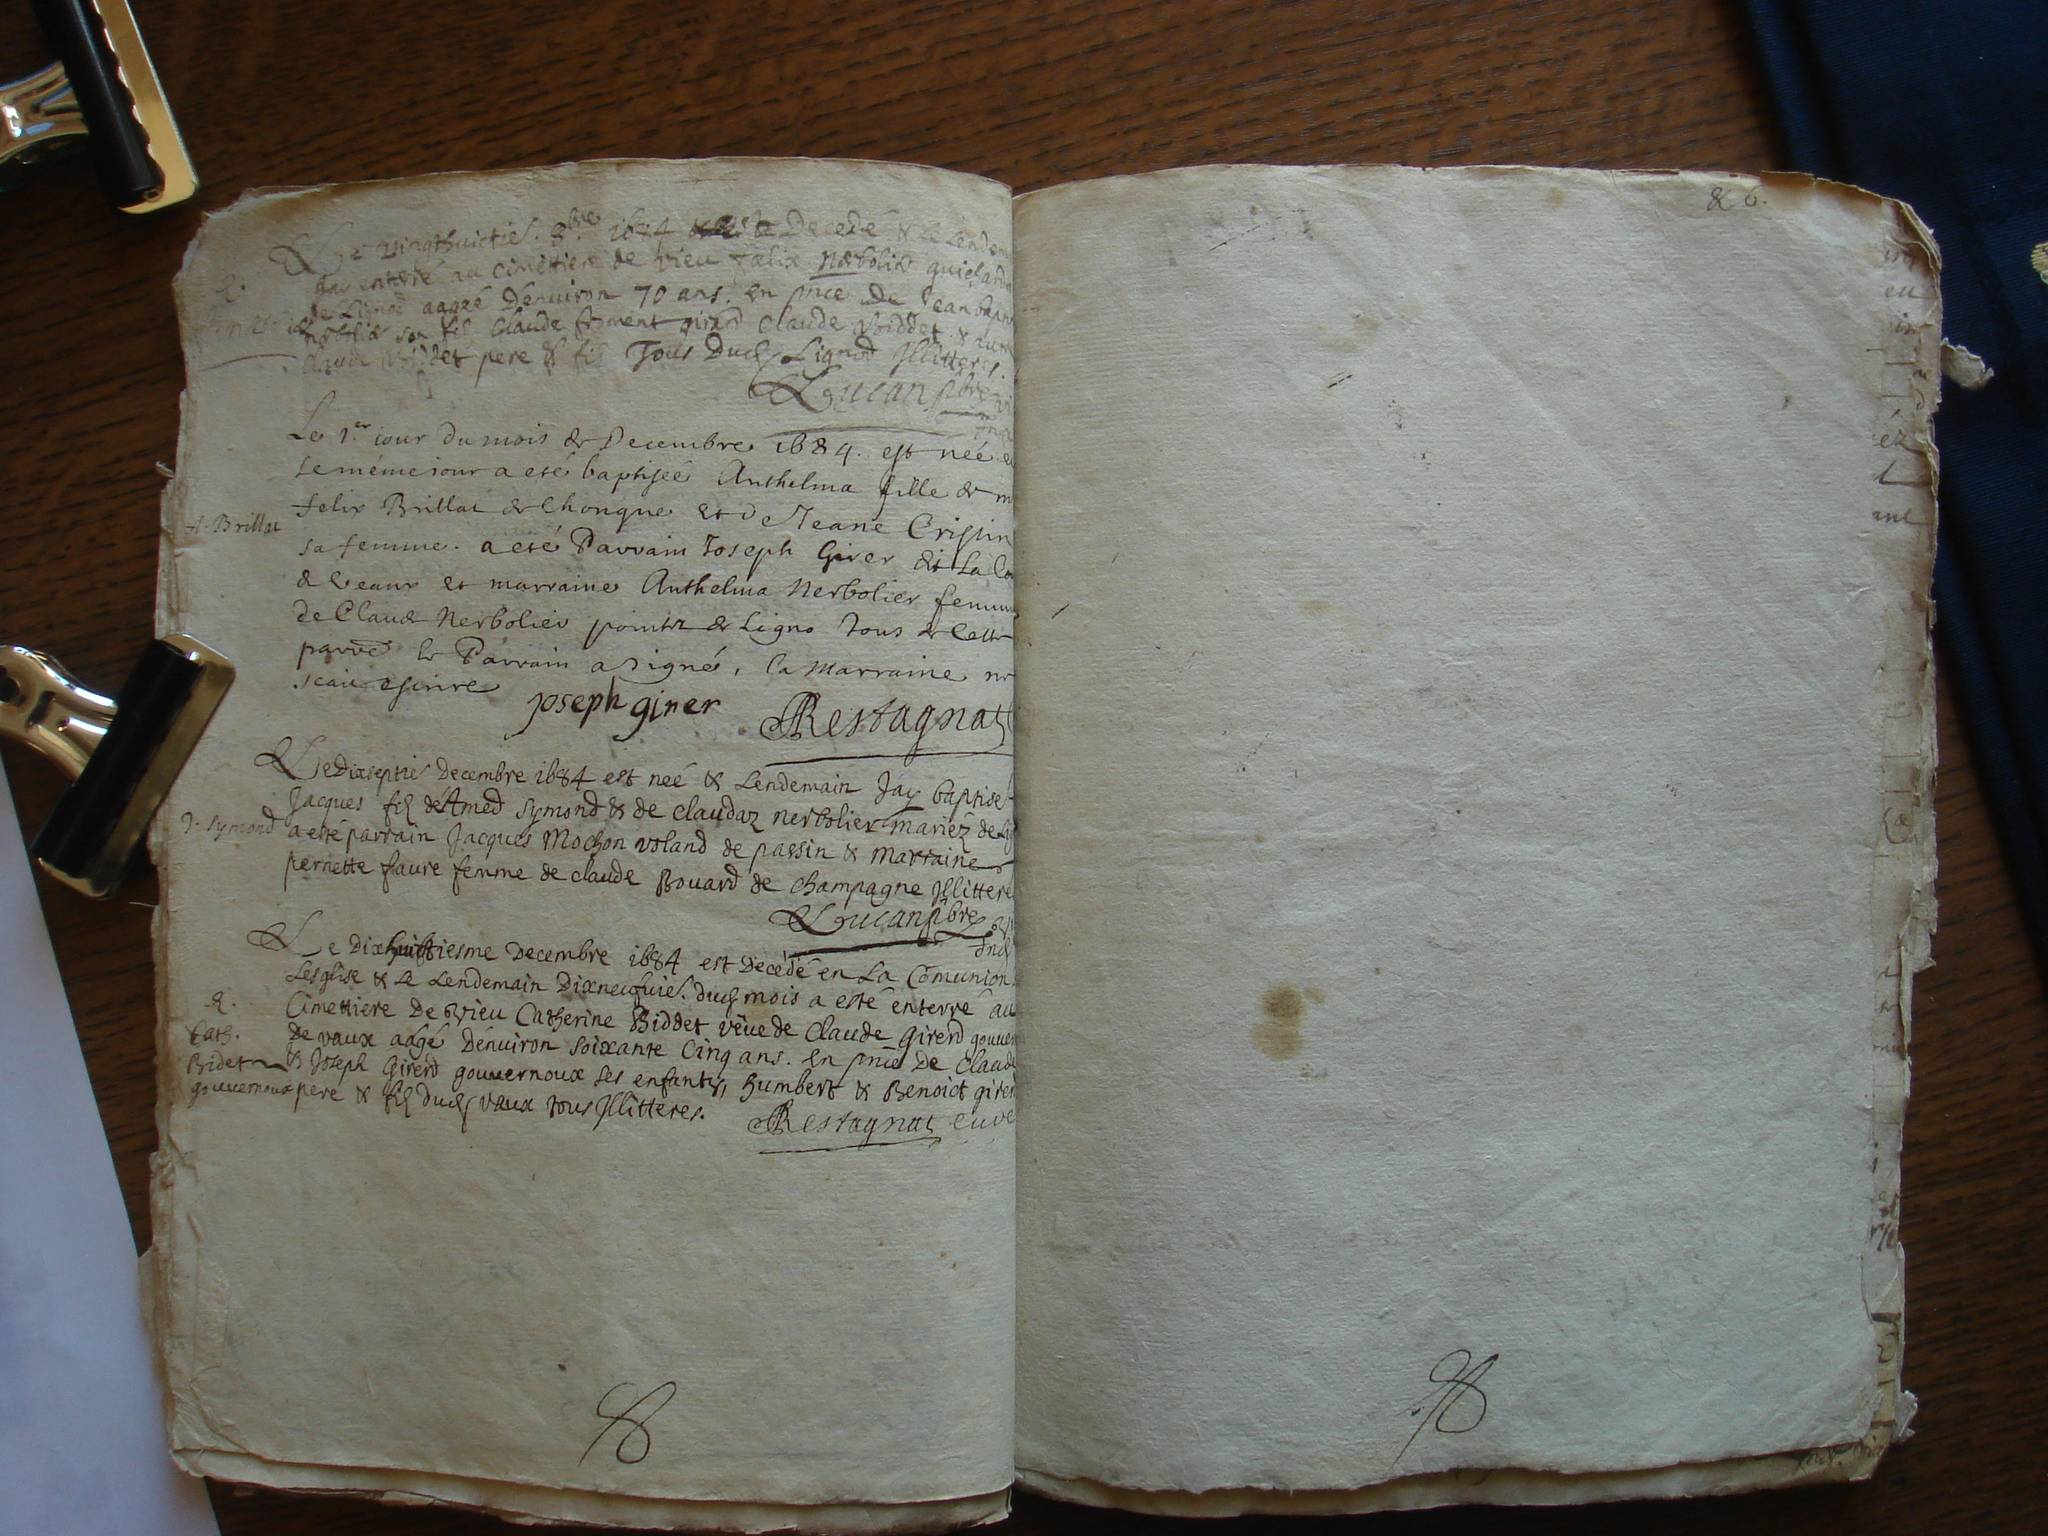 Le vingthuictie. 8bre 1684 est Decedé & le Lendem
enterré au Cimettiere de vieu fælix Nerbolier guichard
de Lignod aagé Dénuiron 70 ans. en pnce De Jean
nerbolier son fil Claude froment girod Claude Biddet &
Claude Biddet pere & fil Tous Dud Lignod Jllitteres.
Lucan pbre
Le 1.er iour du mois de Decembre 1684. est neé e
Le méme iour a eté baptisée Anthelma fille de
A. Brillat
felix Brillat de Chongne et de Jeane Crispin
sa femme. a eté Parrain Joseph Girer dit La Co
de Veaux et marraine Anthelma Nerbolier femm
de Claude Nerbolier pointz de Ligno Tous de Cette
parre le Parrain a signé, la Marraine ne
scait escrire
Joseph girer Restagnat
Le Dixseptie Decembre 1684 est neé & Lendemain Jay baptisé
Jacques fil de Amed Symond & de claudaz nerbolier mariéz de Lig
J. Symond
a esté parrain Jacques Mochon voland de passin & Marraine
pernette faure femme de claude Bouard de Champagne Jllittere
Lucan pbre
Ind
Le Dixhuictiesme Decembre 1684 est Decédé en La Comunion
Lesglise & Le Lendemain Dixneufuie. dud mois a esté enterré au
&.
Cimettiere De vieu Catherine Biddet vêue de Claude Girerd gouver
Cath.
De vaux aâgé Dénuiron soixante Cinq ans. en pnce De Claude
Bridet
& Joseph Girerd gouuernoux ses enfants, humbert & Benoict girer
gouuernoux
pere & fil dud vaux tous Jllitteres.
Restagnat cure
& 6.